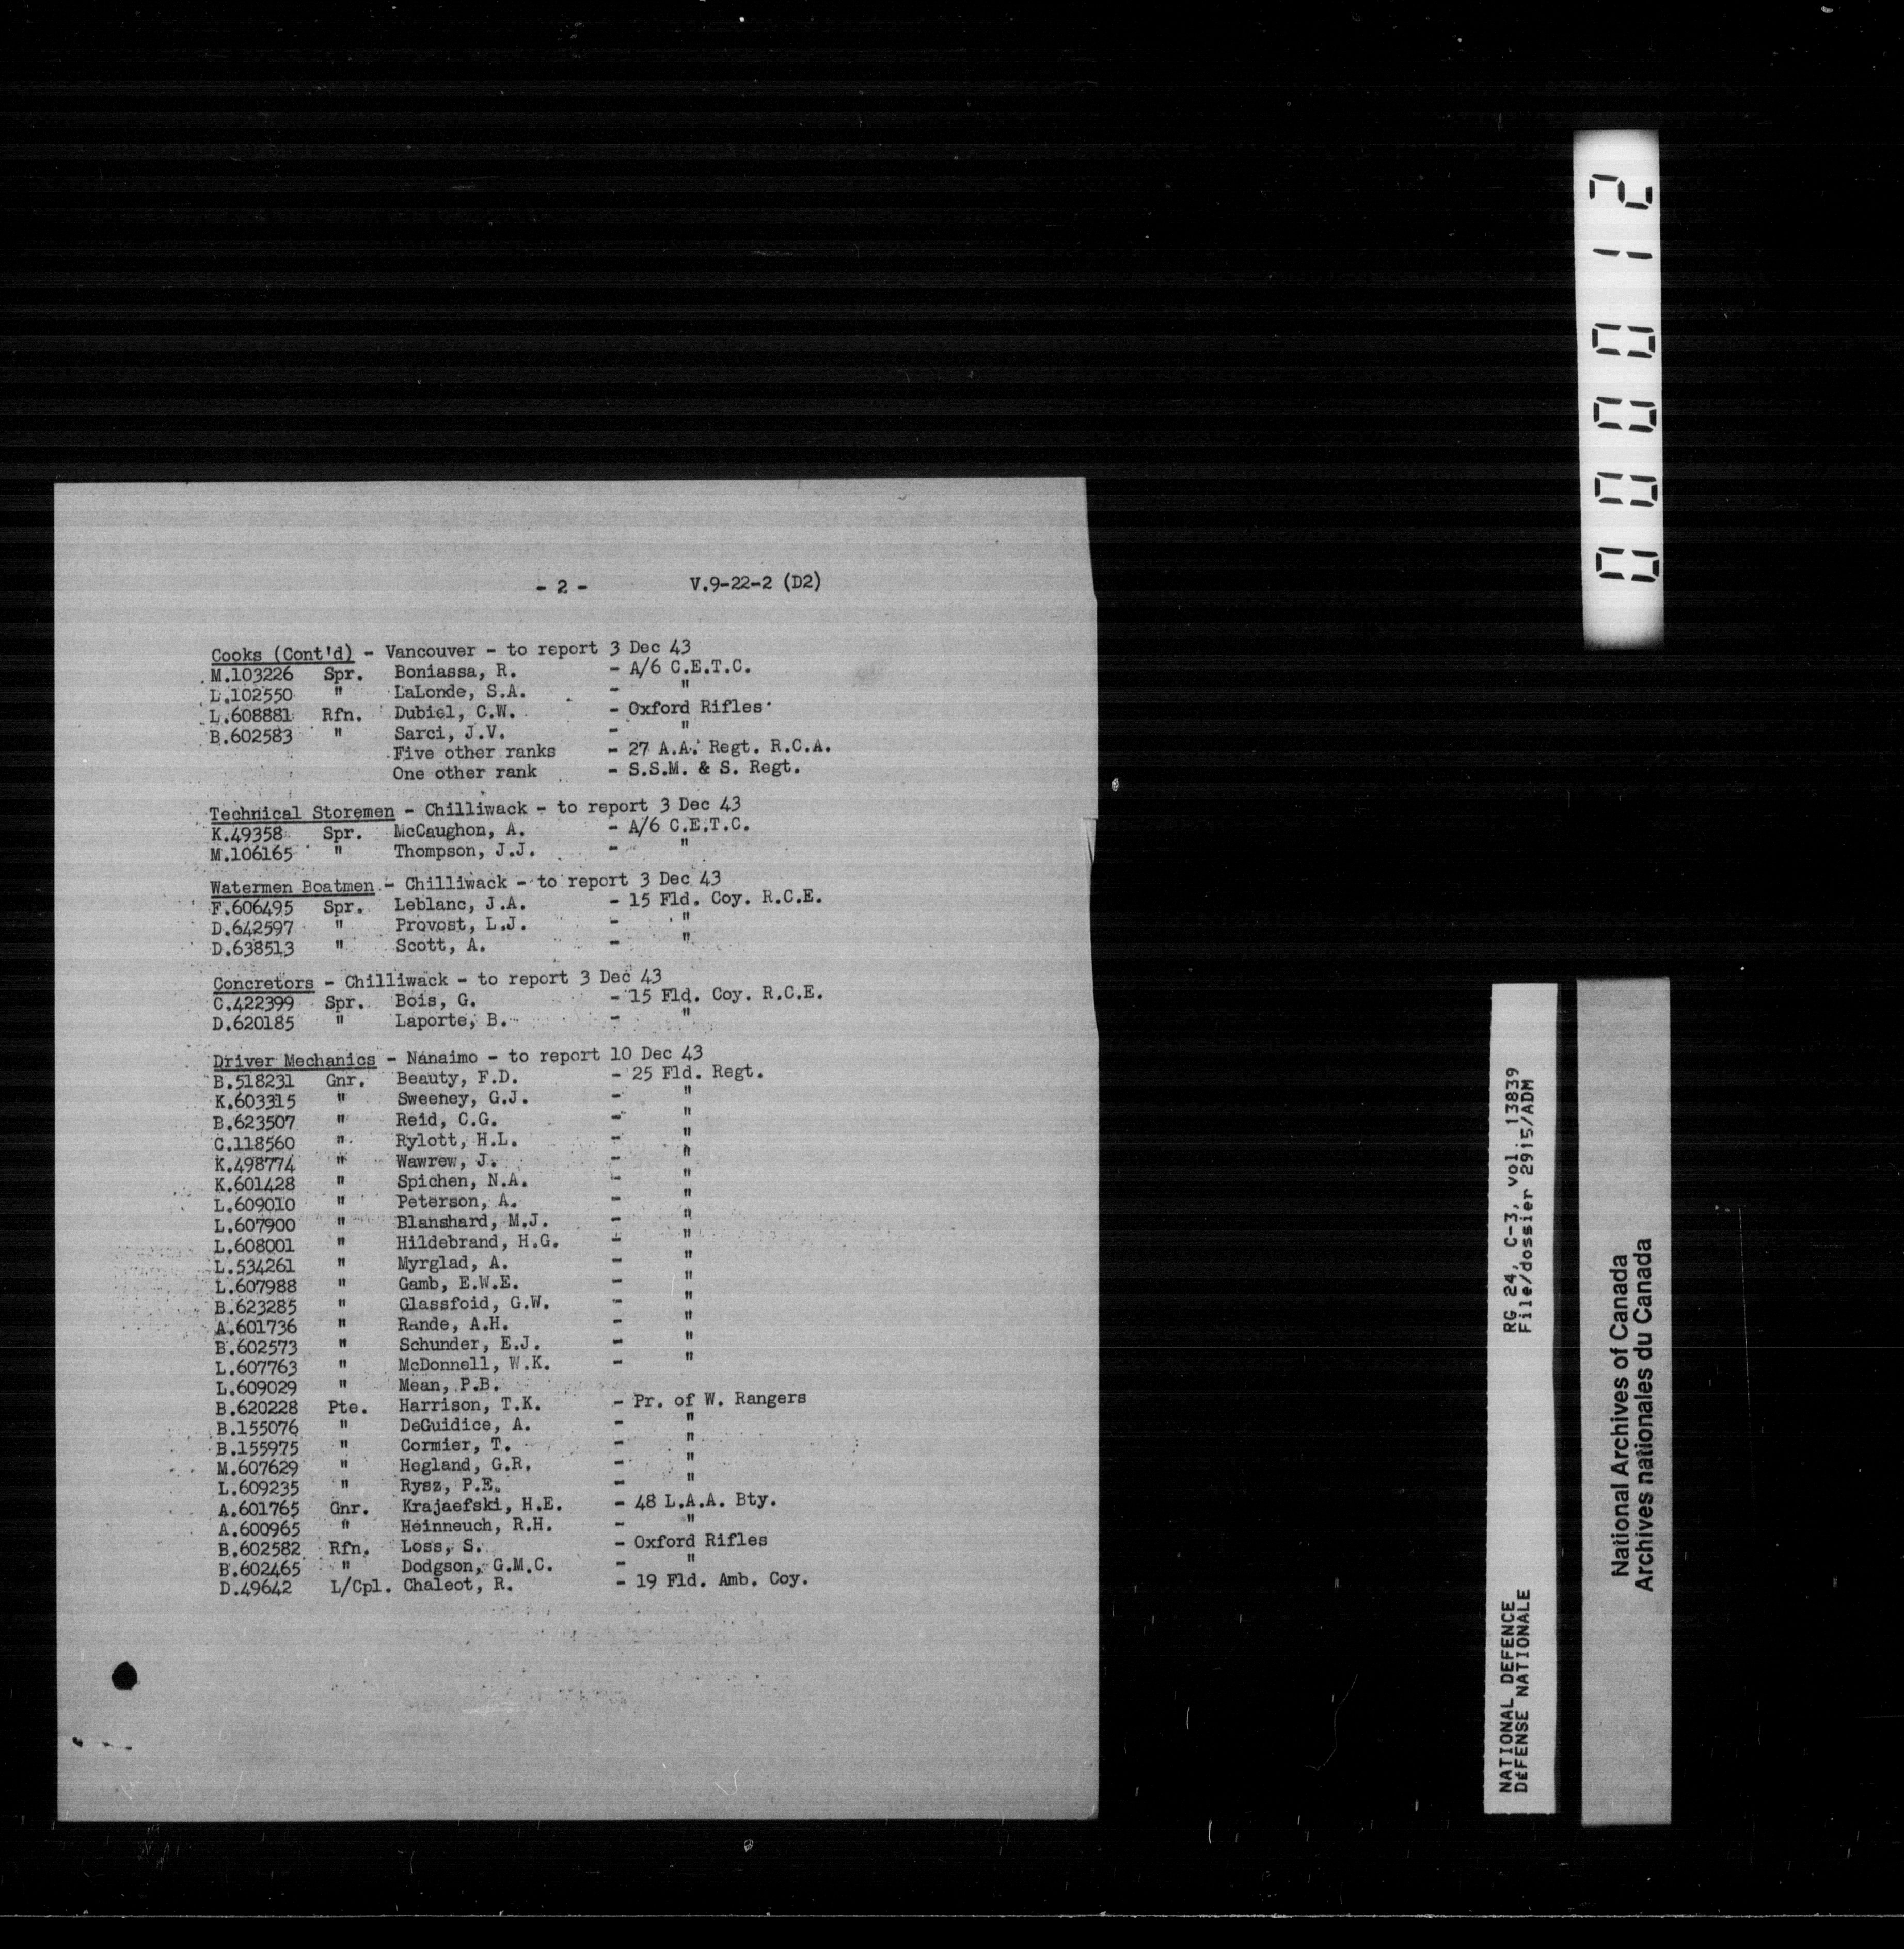 - 2 - V.9-22-2 (D2)
Cooks (Cont'd) - Vancouver - to report 3 Dec 43
M.103226 Spr. Boniassa, R. - A/6 C.E.T.C.
L.102550 " LaLonde, S.A. - "
L.608881 Rfn. Dubiel, C.W. - Oxford Rifles
B.602583 " Sarci, J.V. - "
Five other ranks - 27 A.A. Regt. R.C.A.
One other rank - S.S.M. & S. Regt.
Technical Storemen - Chilliwack - to report 3 Dec 43
K.49358 Spr. McCaughon, A. - A/6 C.E.T.C.
M.106165 " Thompson, J.J. - "
Watermen Boatmen - Chilliwack - to report 3 Dec 43
F.606495 Spr. Leblanc, J.A. - 15 Fld. Coy. R.C.E.
D.642597 " Provost, L.J. - "
D.638513 " Scott, A. - "
Concretors - Chilliwack - to report 3 Dec 43
C.422399 Spr. Bois, G. - 15 Fld. Coy. R.C.E.
D.620185 " Laporte, B. - "
Driver Mechanics - Nanaimo - to report 10 Dec 43
B.518231 Gnr. Beauty, F.D. - 25 Fld. Regt.
K.603315 " Sweeney, G.J. - "
B.623507 " Reid, C.G. - "
C.118560 " Rylott, H.L. - "
K.498774 " Wawrew, J. - "
K.601428 " Spichen, N.A. - "
L.609010 " Peterson, A. - "
L.607900 " Blanshard, M.J. - "
L.608001 " Hildebrand, H.G. - "
L.534261 " Myrglad, A. - "
L.607988 " Gamb, E.W.E. - "
B.623285 " Glassfoid, G.W. - "
A.601736 " Rande, A.H. - "
B.602573 " Schunder, E.J. - "
L.607763 " McDonnell, W.K. - "
L.609029 " Mean, P.B.
B.620228 Pte. Harrison, T.K. - Pr. of W. Rangers
B.155076 " DeGuidice, A. - "
B.155975 " Cormier, T. - "
M.607629 " Hegland, G.R. - "
L.609235 " Rysz, P.E. - "
A.601765 Gnr. Krajaefski, H.E. - 48 L.A.A. Bty.
A.600965 " Heinneuch, R.H. - "
B.602582 Rfn. Loss, S. - Oxford Rifles
B.602465 " Dodgson, G.M.C. - "
D.49642 L/Cpl. Chaleot, R. - 19 Fld. Amb. Coy.
000012
NATIONAL DEFENCE RG 24, C-3, vol. 13839
DÉFENSE NATIONALE File/dossier 2915/ADM
National Archives of Canada
Archives nationales du Canada